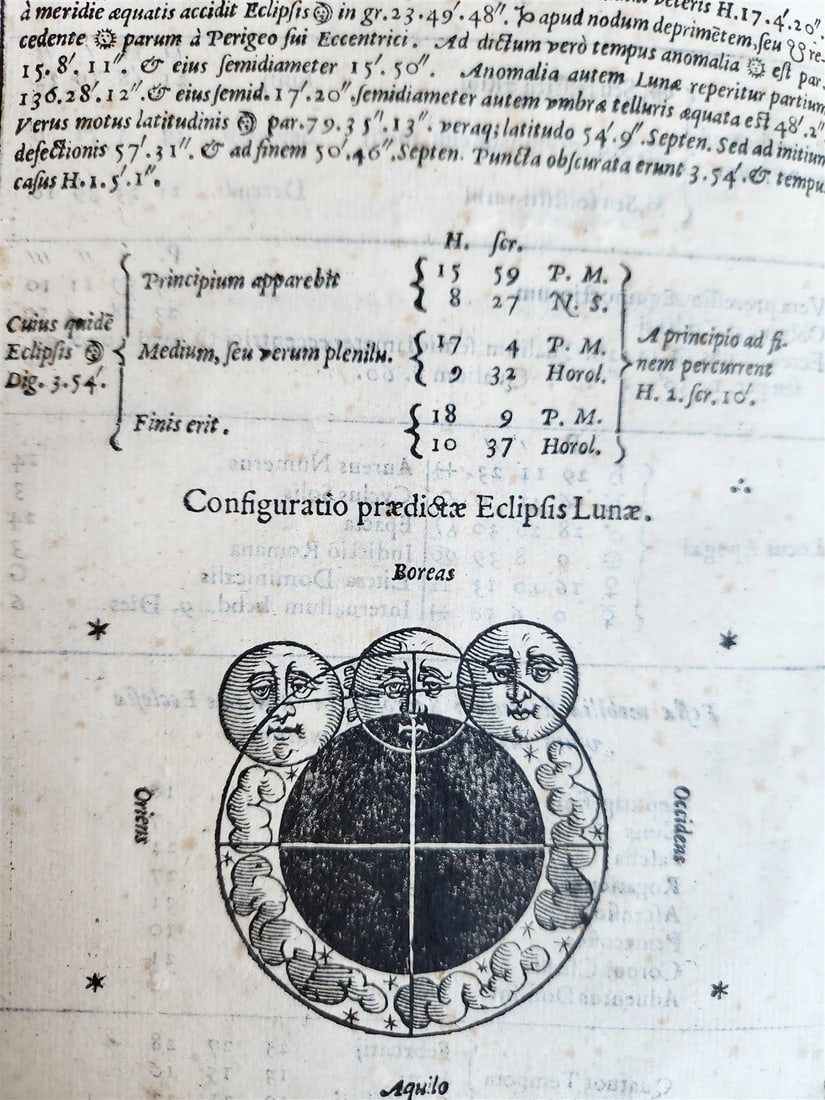 veteris H.17.4′.20″.
à meridie æquatis accidit Eclipſis ☽ in gr.23.49′.48″. ♑ apud nodum deprimētem,ſeu ☋ re-
cedente ☼ parum à Perigeo ſui Eccentrici. Ad dictum verò tempus anomalia ☼ eſt par.
15.8′.11″. & eius ſemidiameter 15′.50″. Anomalia autem Lunæ reperitur partium
136.28′.12″.& eius ſemid.17′.20″.ſemidiameter autem vmbræ telluris æquata eſt 48′.2″
Verus motus latitudinis ☽ par.79.35″.13″. veraq; latitudo 54′.9″.Septen. Sed ad initium
defectionis 57′.31″. & ad finem 50′.46″.Septen. Puncta obſcurata erunt 3.54′.& tempu
caſus H.1.5′.1″.
H. ſcr.
Cuius quidē
Eclipſis ☽
Dig. 3.54′.
Principium apparebit
15 59 P. M.
8 27 N. S.
Medium, ſeu verum plenilu.
17 4 P. M.
9 32 Horol.
Finis erit.
18 9 P. M.
10 37 Horol.
A principio ad fi-
nem percurrent
H. 2. ſcr. 10′.
Configuratio prædictæ Eclipſis Lunæ.
Boreas
Oriens
Occidens
Aquilo